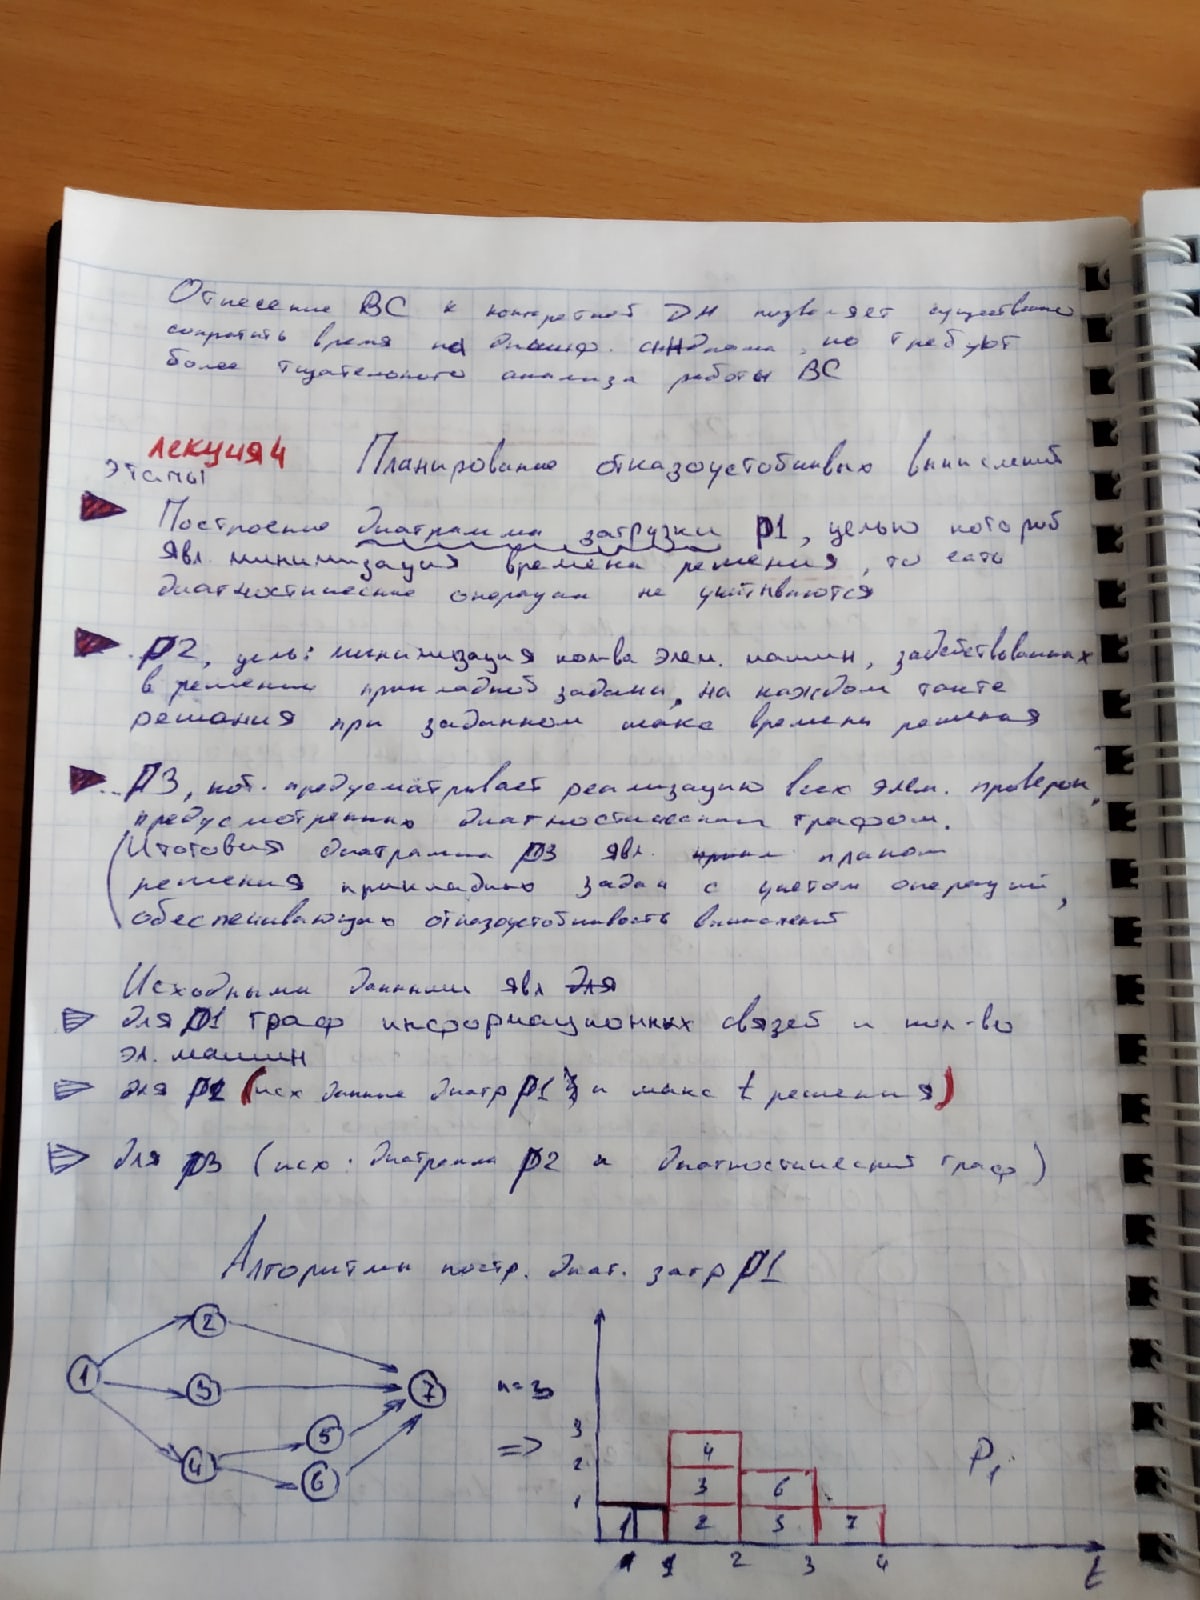 Отнесение ВС к конкретной ДН позволяет существенно
сократить время на дешиф. синдрома, но требуют
более тщательного анализа работы ВС
лекция 4 Планирование отказоустойчивых вычислений
этапы
Построение диаграммы загрузки P1, целью которой
явл. минимизация времени решения, то есть
диагностические операции не учитываются
P2, цель: минимизация кол-ва элем. машин, задействованных
в решении прикладной задачи, на каждом такте
решания при заданном макс времени решения
P3, кот. предусматривает реализацию всех элем. проверок,
предусмотренных диагностическим графом.
(Итоговая диаграмма P3 явл. планом
решения прикладных задач с учетом операций,
обеспечивающих отказоустойчивость вычислений
Исходными данными явл для
для P1 граф информационных связей и кол-во
эл. машин
для P2 (исх данные диагр P1 и макс t решения)
для P3 (исх. диаграмма P2 и диагностический граф)
Алгоритмы постр. диаг. загр P1
1 2 3 4 5 6 7
n=3
=>
3
2
1
4
3 6
1 2 5 7
1 2 3 4
t
P1